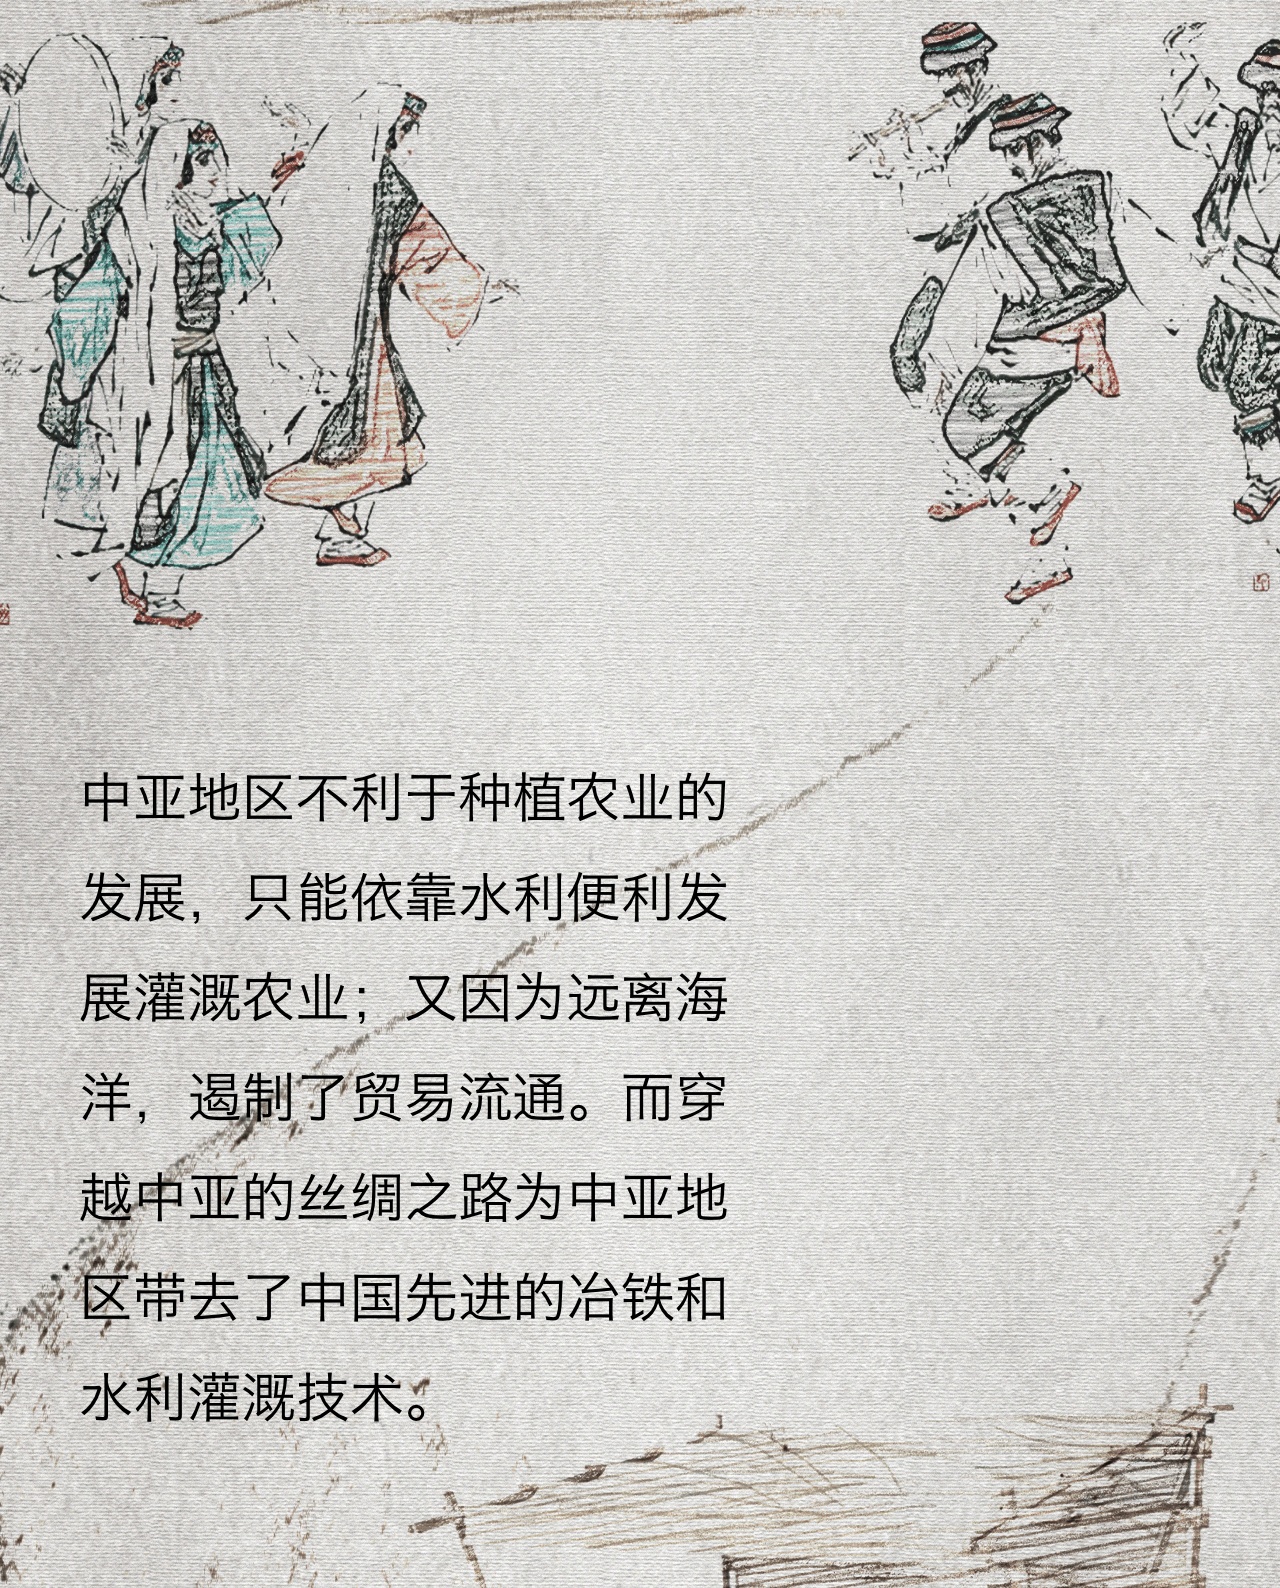 中亚地区不利于种植农业的
发展，只能依靠水利便利发
展灌溉农业；又因为远离海
洋，遏制了贸易流通。而穿
越中亚的丝绸之路为中亚地
区带去了中国先进的冶铁和
水利灌溉技术。